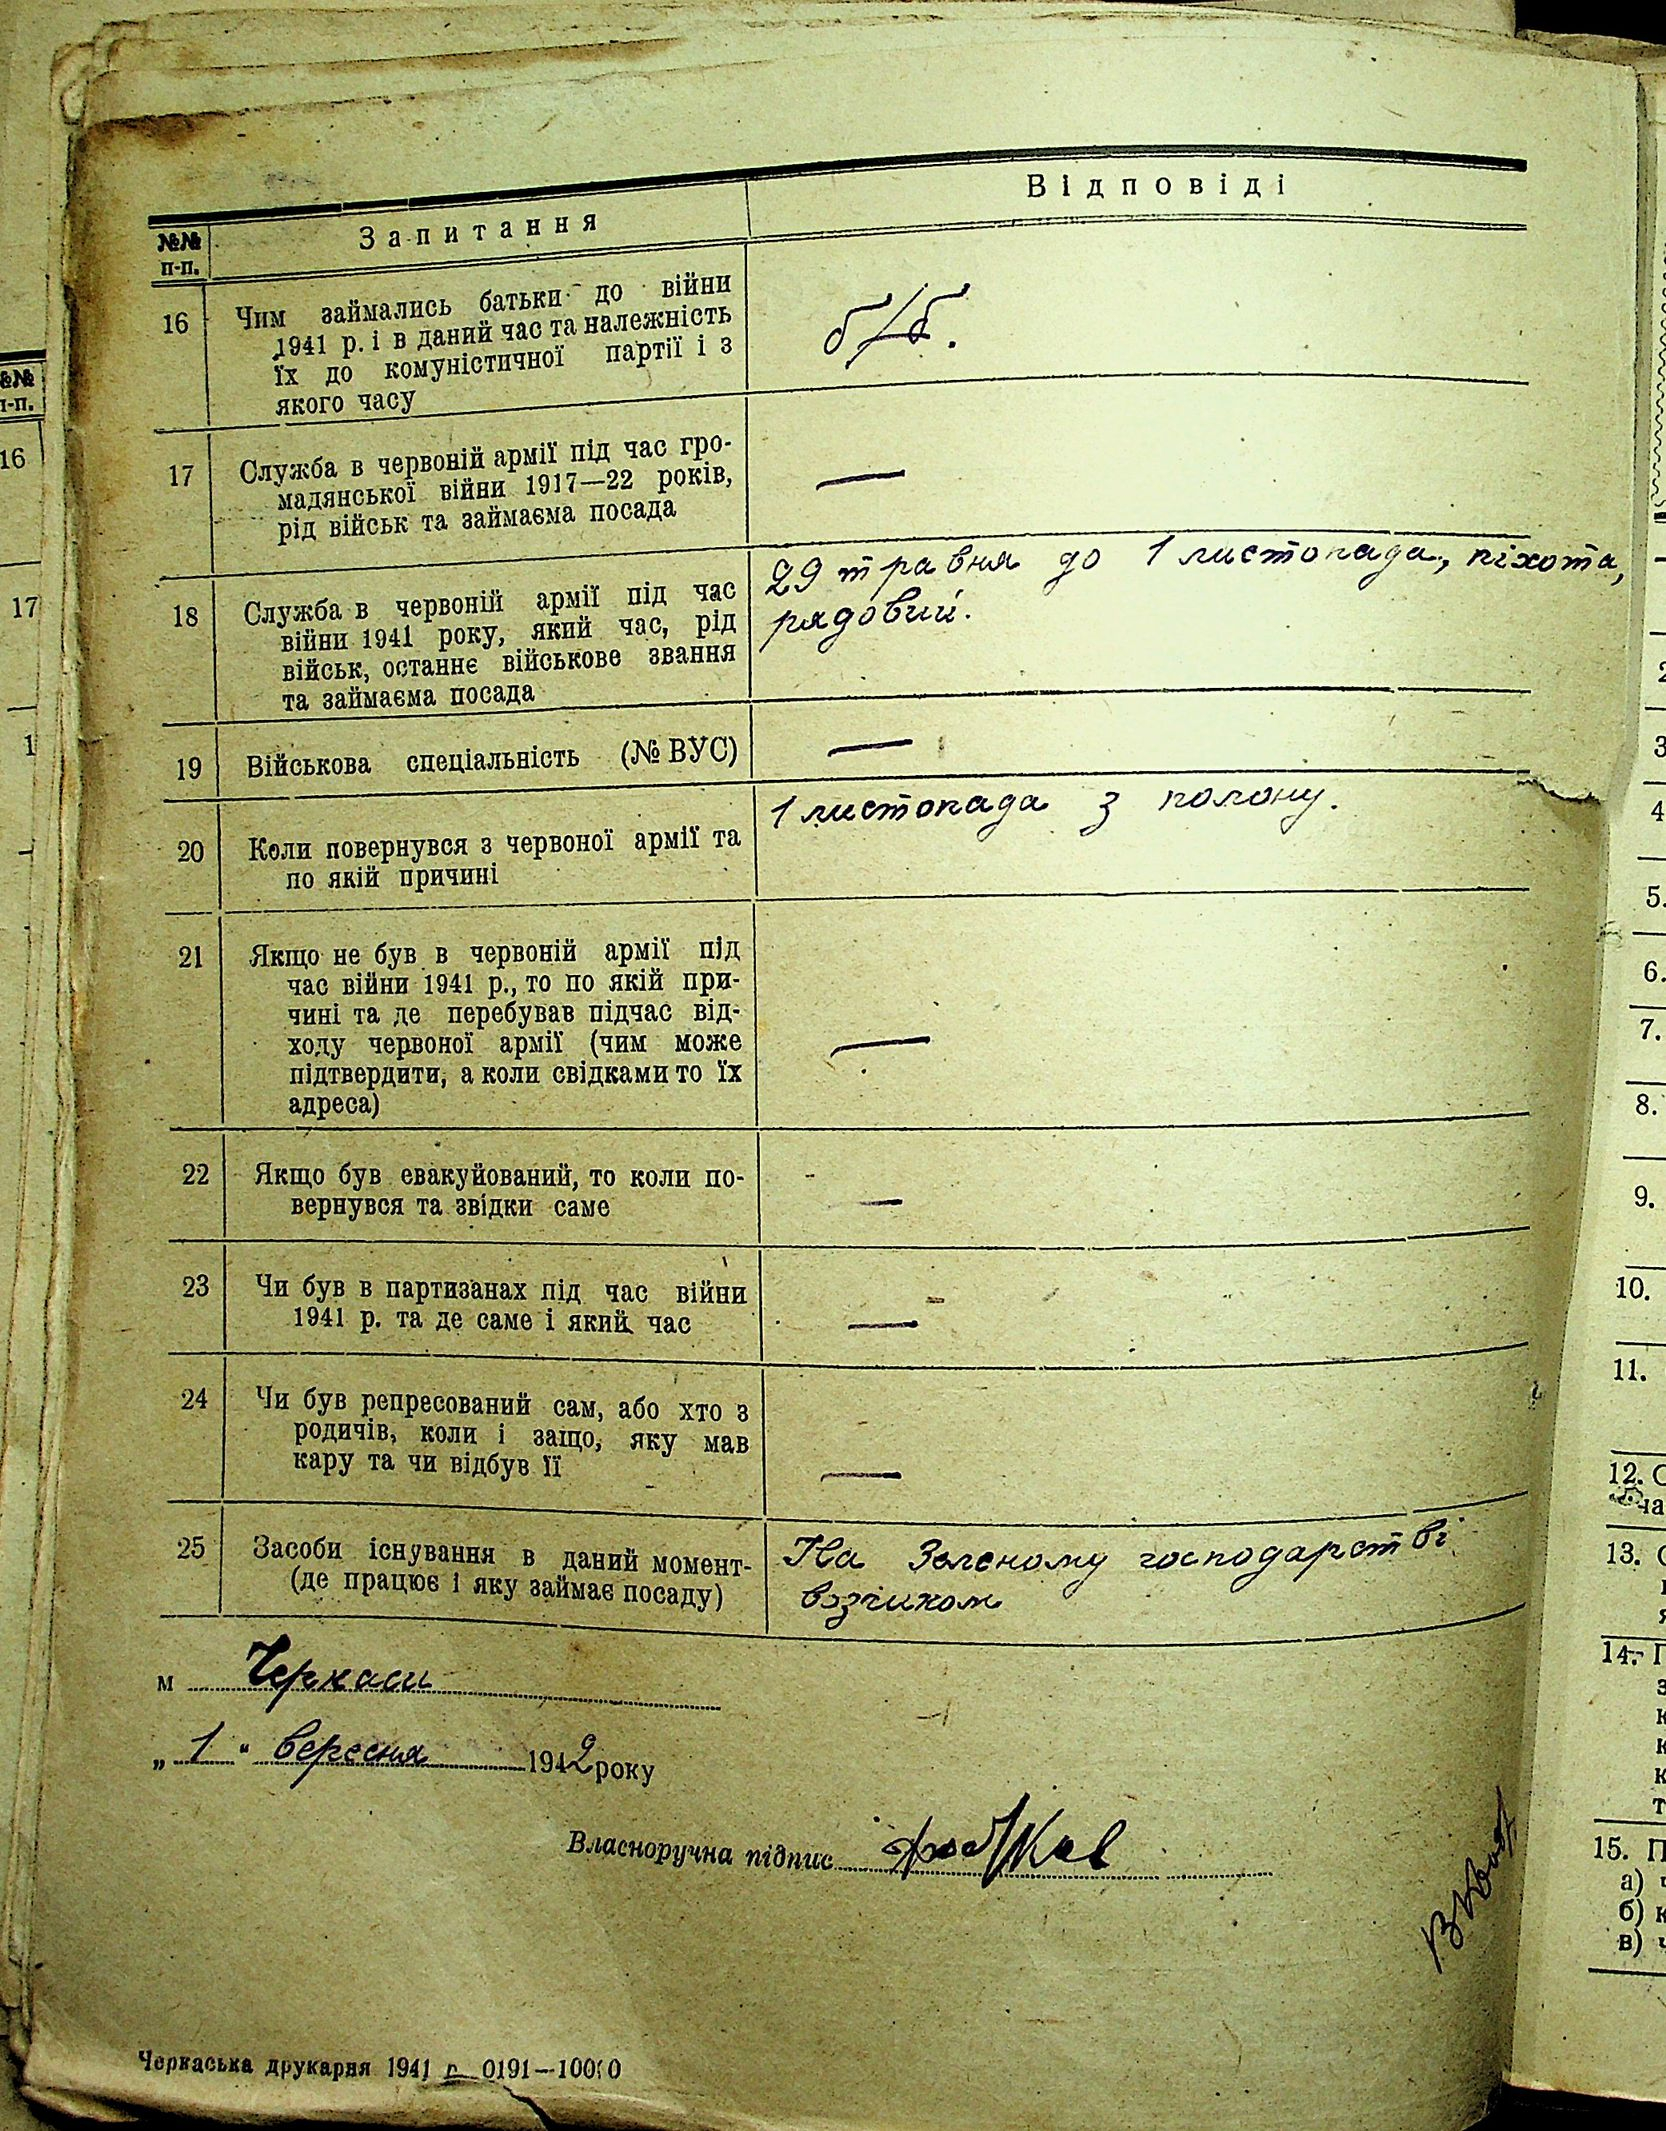 №№ п-п. Запитання Відповіді
16 Чим займались батьки до війни
1941 р. і в даний час та належність
їх до комуністичної партії і з
якого часу
б/б.
17 Служба в червоній армії під час гро-
мадянської війни 1917—22 років,
рід військ та займаєма посада
—
18 Служба в червоній армії під час
війни 1941 року, який час, рід
військ, останнє військове звання
та займаєма посада
29 травня до 1 листопада, піхота,
рядовий.
19 Військова спеціальність (№ ВУС)
—
20 Коли повернувся з червоної армії та
по якій причині
1 листопада з полону.
21 Якщо не був в червоній армії під
час війни 1941 р., то по якій при-
чині та де перебував підчас від-
ходу червоної армії (чим може
підтвердити, а коли свідками то їх
адреса)
—
22 Якщо був евакуйований, то коли по-
вернувся та звідки саме
—
23 Чи був в партизанах під час війни
1941 р. та де саме і який час
—
24 Чи був репресований сам, або хто з
родичів, коли і защо, яку мав
кару та чи відбув її
—
25 Засоби існування в даний момент-
(де працює і яку займає посаду)
На Зеленому господарстві
візчиком
м Черкаси
„ 1 " вересня 1942 року
Власноручна підпис
Черкаська друкарня 1941 г. 0191—10000
№№
п-п.
16
17
1
2
3
4
5.
6.
7.
8.
9.
10.
11.
12. С
ча
13. С
14. П
15. П
а) ч
б) к
в) ч